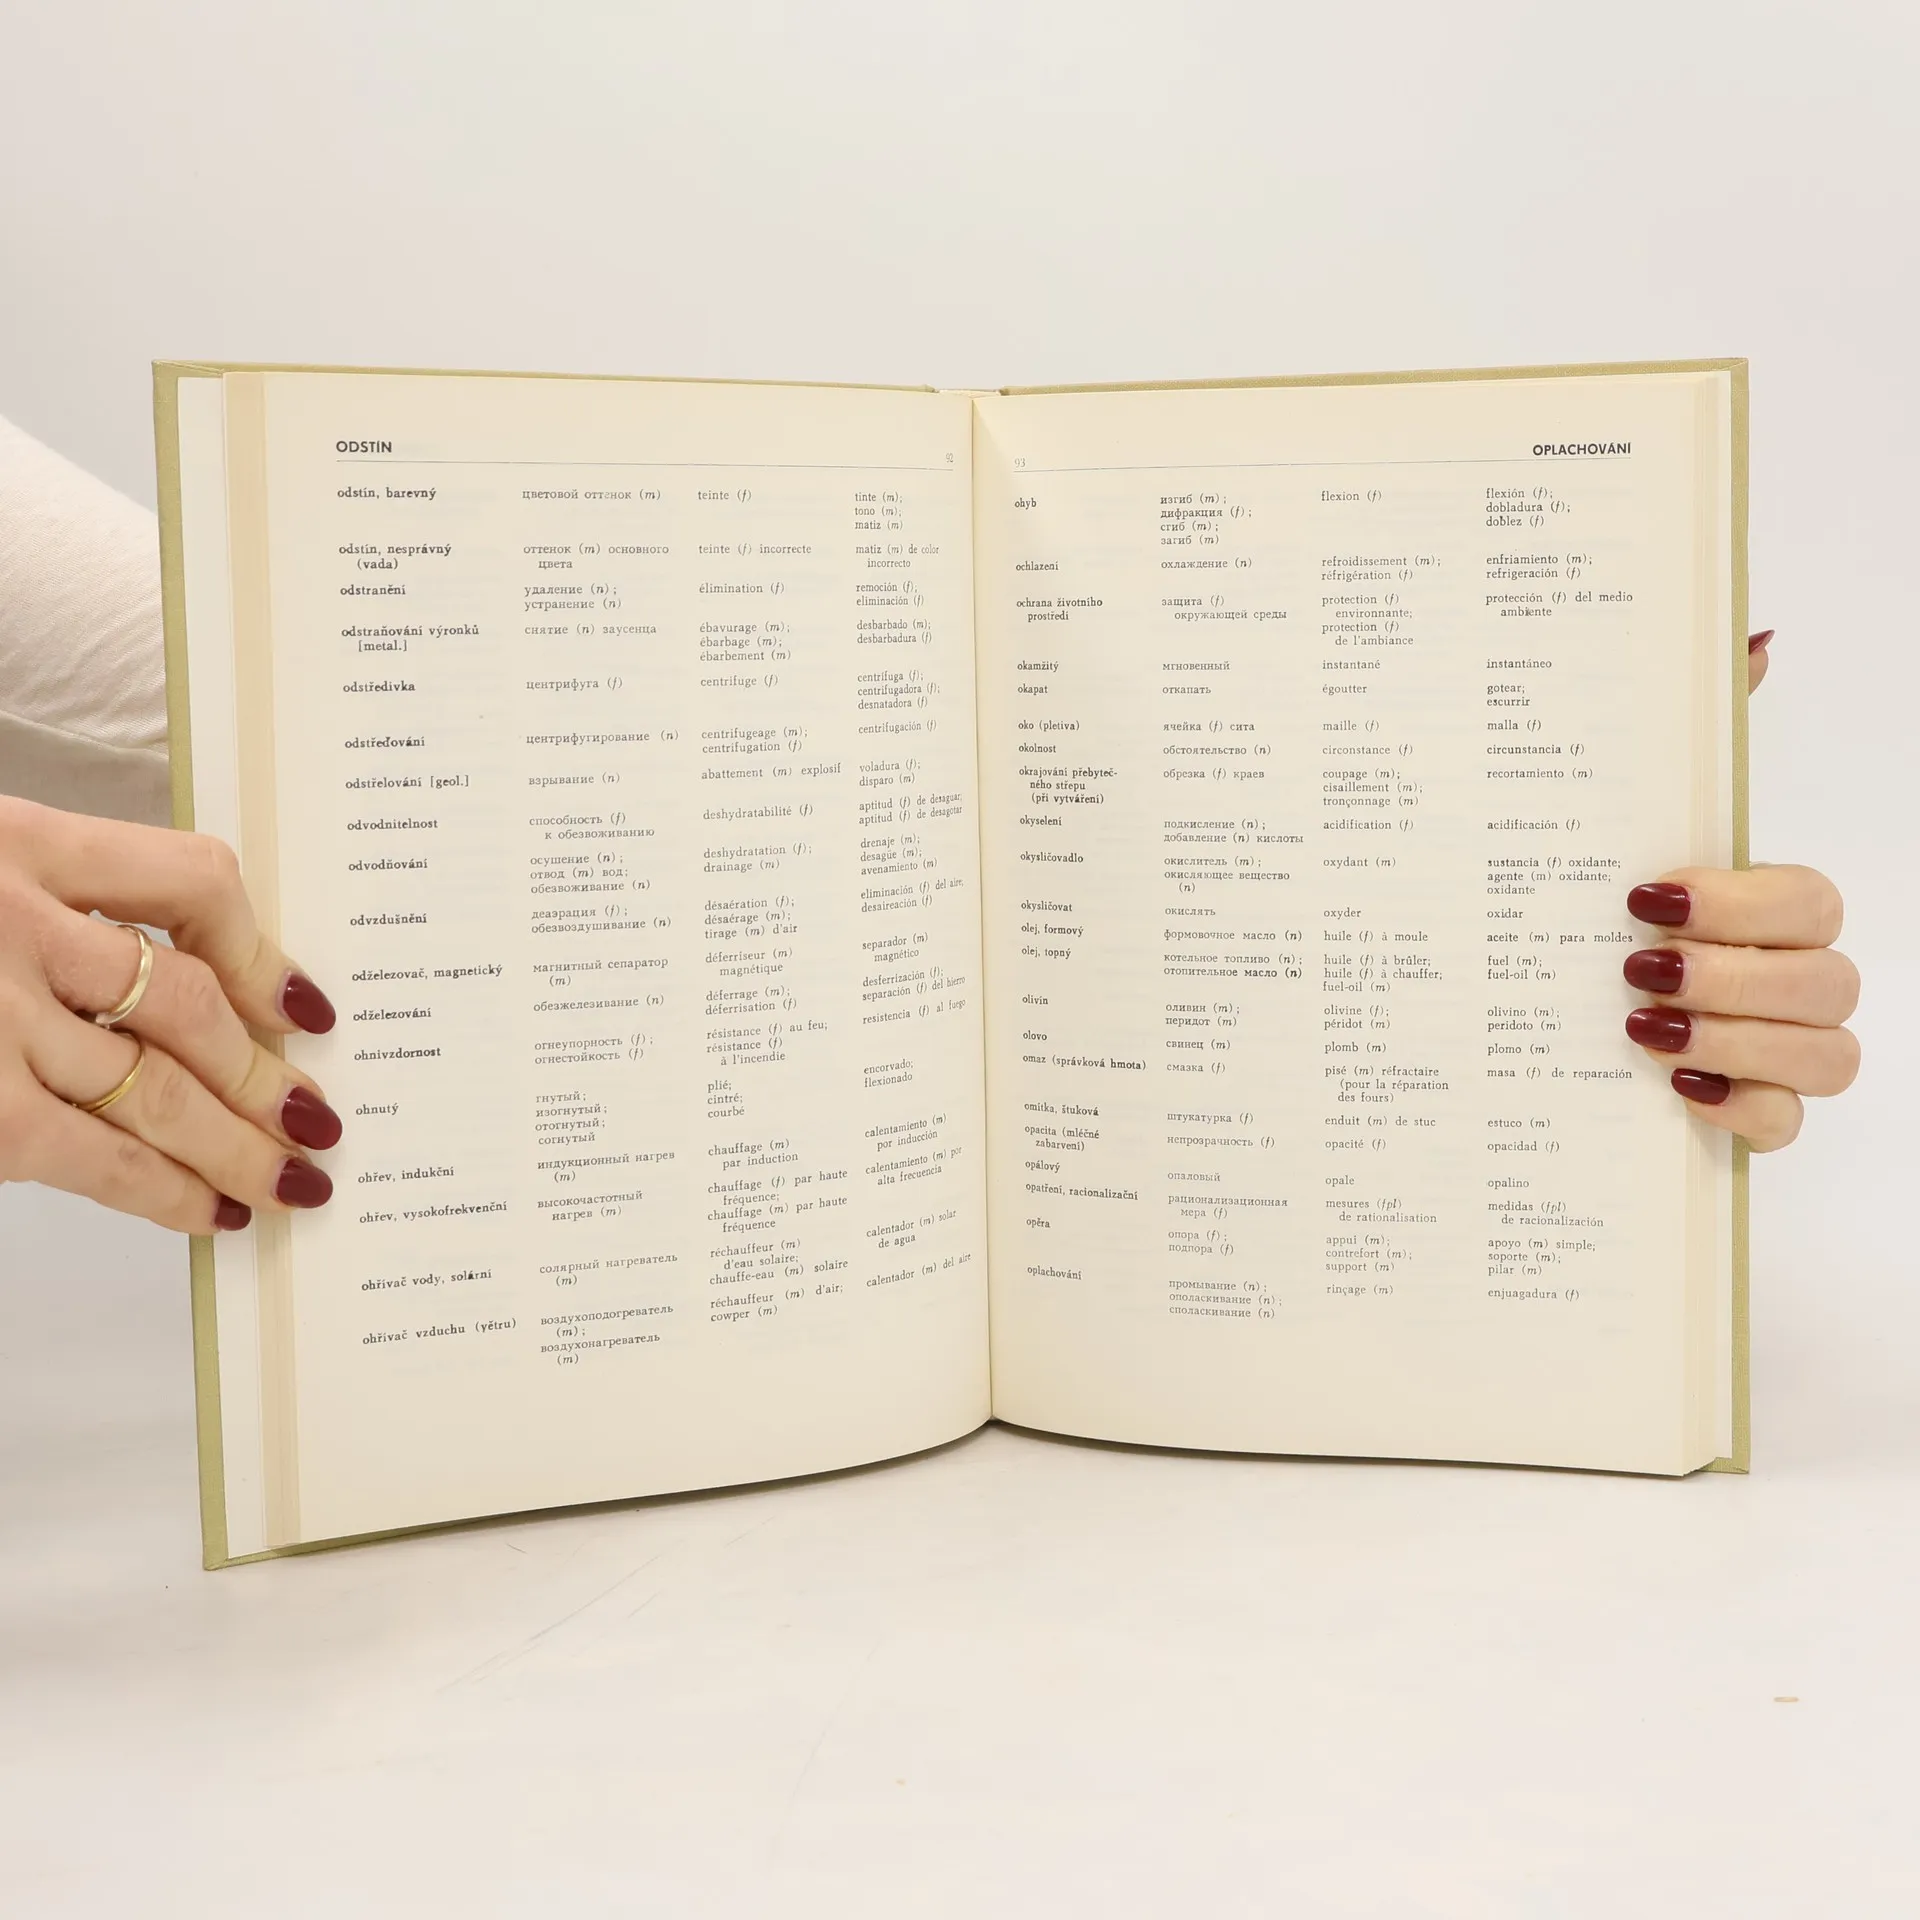 ODSTÍN
92
odstín, barevný
цветовой оттенок (m)
teinte (f)
tinte (m);
tono (m);
matiz (m)
odstín, nesprávný
(vada)
оттенок (m) основного
цвета
teinte (f) incorrecte
matiz (m) de color
incorrecto
odstranění
удаление (n);
устранение (n)
élimination (f)
remoción (f);
eliminación (f)
odstraňování výronků
[metal.]
снятие (n) заусенца
ébavurage (m);
ébarbage (m);
ébarbement (m)
desbarbado (m);
desbarbadura (f)
odstředivka
центрифуга (f)
centrifuge (f)
centrífuga (f);
centrifugadora (f);
desnatadora (f)
odstřeďování
центрифугирование (n)
centrifugeage (m);
centrifugation (f)
centrifugación (f)
odstřelování [geol.]
взрывание (n)
abattement (m) explosif
voladura (f);
disparo (m)
odvodnitelnost
способность (f)
к обезвоживанию
deshydratabilité (f)
aptitud (f) de desaguar;
aptitud (f) de desagotar
odvodňování
осушение (n);
отвод (m) вод;
обезвоживание (n)
deshydratation (f);
drainage (m)
drenaje (m);
desagüe (m);
avenamiento (m)
odvzdušnění
деаэрация (f);
обезвоздушивание (n)
désaération (f);
désaérage (m);
tirage (m) d'air
eliminación (f) del aire;
desaireación (f)
odželezovač, magnetický
магнитный сепаратор
(m)
déferriseur (m)
magnétique
separador (m)
magnético
odželezování
обезжелезивание (n)
déferrage (m);
déferrisation (f)
desferrización (f);
separación (f) del hierro
ohnivzdornost
огнеупорность (f);
огнестойкость (f)
résistance (f) au feu;
résistance (f)
à l'incendie
resistencia (f) al fuego
ohnutý
гнутый;
изогнутый;
отогнутый;
согнутый
plié;
cintré;
courbé
encorvado;
flexionado
ohřev, indukční
индукционный нагрев
(m)
chauffage (m)
par induction
calentamiento (m)
por inducción
ohřev, vysokofrekvenční
высокочастотный
нагрев (m)
chauffage (f) par haute
fréquence;
chauffage (m) par haute
fréquence
calentamiento (m) por
alta frecuencia
ohřívač vody, solární
солярный нагреватель
(m)
réchauffeur (m)
d'eau solaire;
chauffe-eau (m) solaire
calentador (m) solar
de agua
ohřívač vzduchu (větru)
воздухоподогреватель
(m);
воздухонагреватель
(m)
réchauffeur (m) d'air;
cowper (m)
calentador (m) del aire
93
OPLACHOVÁNÍ
ohyb
изгиб (m);
дифракция (f);
сгиб (m);
загиб (m)
flexion (f)
flexión (f);
dobladura (f);
doblez (f)
ochlazení
охлаждение (n)
refroidissement (m);
réfrigération (f)
enfriamiento (m);
refrigeración (f)
ochrana životního
prostředí
защита (f)
окружающей среды
protection (f)
environnante;
protection (f)
de l'ambiance
protección (f) del medio
ambiente
okamžitý
мгновенный
instantané
instantáneo
okapat
откапать
égoutter
gotear;
escurrir
oko (pletiva)
ячейка (f) сита
maille (f)
malla (f)
okolnost
обстоятельство (n)
circonstance (f)
circunstancia (f)
okrajování přebyteč-
ného střepu
(při vytváření)
обрезка (f) краев
coupage (m);
cisaillement (m);
tronçonnage (m)
recortamiento (m)
okyselení
подкисление (n);
добавление (n) кислоты
acidification (f)
acidificación (f)
okysličovadlo
окислитель (m);
окисляющее вещество
(n)
oxydant (m)
sustancia (f) oxidante;
agente (m) oxidante;
oxidante
okysličovat
окислять
oxyder
oxidar
olej, formový
формовочное масло (n)
huile (f) à moule
aceite (m) para moldes
olej, topný
котельное топливо (n);
отопительное масло (n)
huile (f) à brûler;
huile (f) à chauffer;
fuel-oil (m)
fuel (m);
fuel-oil (m)
olivín
оливин (m);
перидот (m)
olivine (f);
péridot (m)
olivino (m);
peridoto (m)
olovo
свинец (m)
plomb (m)
plomo (m)
omaz (správková hmota)
смазка (f)
pisé (m) réfractaire
(pour la réparation
des fours)
masa (f) de reparación
omítka, štuková
штукатурка (f)
enduit (m) de stuc
estuco (m)
opacita (mléčné
zabarvení)
непрозрачность (f)
opacité (f)
opacidad (f)
opálový
опаловый
opale
opalino
opatření, racionalizační
рационализационная
мера (f)
mesures (fpl)
de rationalisation
medidas (fpl)
de racionalización
opěra
опора (f);
подпора (f)
appui (m);
contrefort (m);
support (m)
apoyo (m) simple;
soporte (m);
pilar (m)
oplachování
промывание (n);
ополаскивание (n);
споласкивание (n)
rinçage (m)
enjuagadura (f)